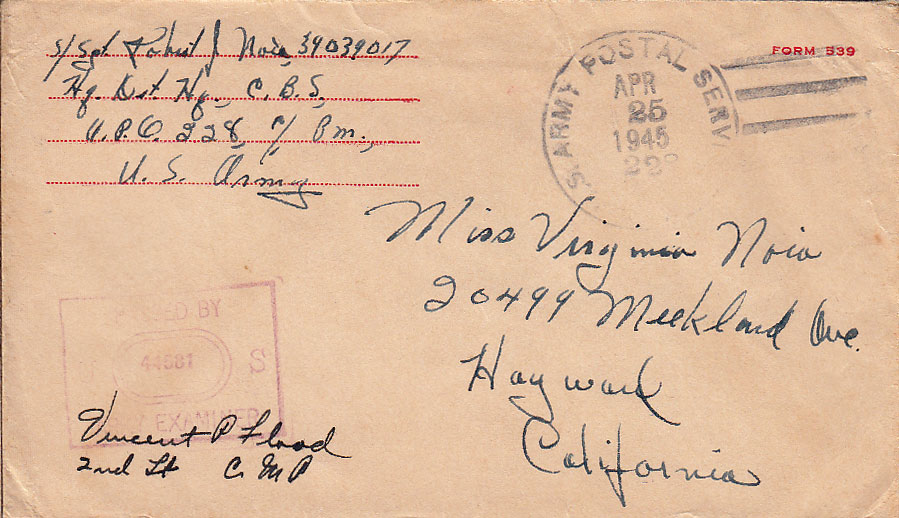 S/Sgt Robert J Noia, 39039017
Hq. Dist Hq., C.B.S,
A.P.O. 228, c/o Pm.,
U.S. Army
FORM 539
ARMY POSTAL SERV
APR
25
1945
Miss Virginia Noia
20499 Meekland Ave.
Hayward
California
BY
S
EXAMINER
Vincent P Flood
2nd Lt C M P